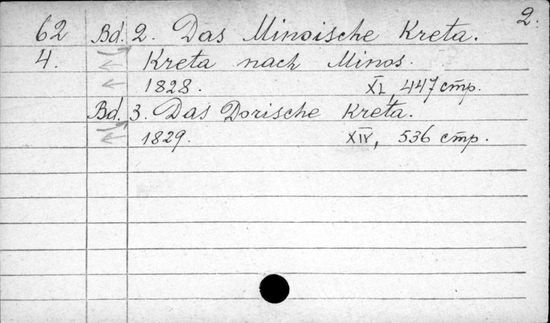 2.
62 Bd. 2. Das Minoische Kreta.
4. Kreta nach Minos.
1828. XI, 447 стр.
Bd. 3. Das Dorische Kreta.
1829. XIV, 536 стр.